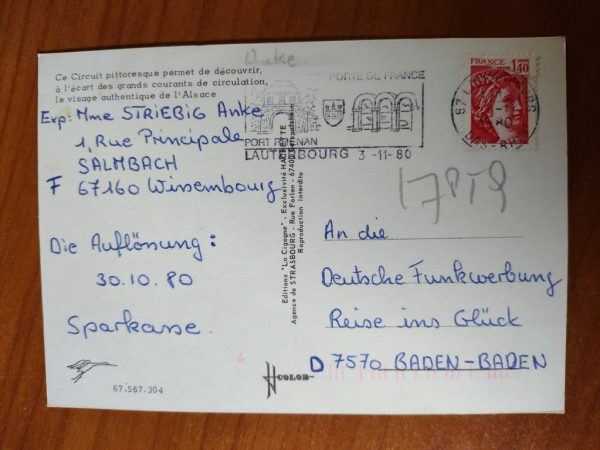 Anke.
Ce Circuit pittoresque permet de découvrir,
à l'écart des grands courants de circulation,
le visage authentique de l'Alsace
PORTE DE FRANCE
PORT RHENAN
LAUTERBOURG 3 -11- 80
FRANCE
1,40
Exp: Mme STRIEBIG Anke
1, Rue Principale
SALMBACH
F 67160 Wissembourg
Die Auflösung:
30.10.80
Sparkasse.
67.567.304
Editions "La Cigogne" - Exclusivité HACHETTE
Agence de STRASBOURG - Rue Forlen - 67400 Geispolsheim
Reproduction interdite
COLOR
An die
Deutsche Funkwerbung
Reise ins Glück
D 7570 BADEN-BADEN